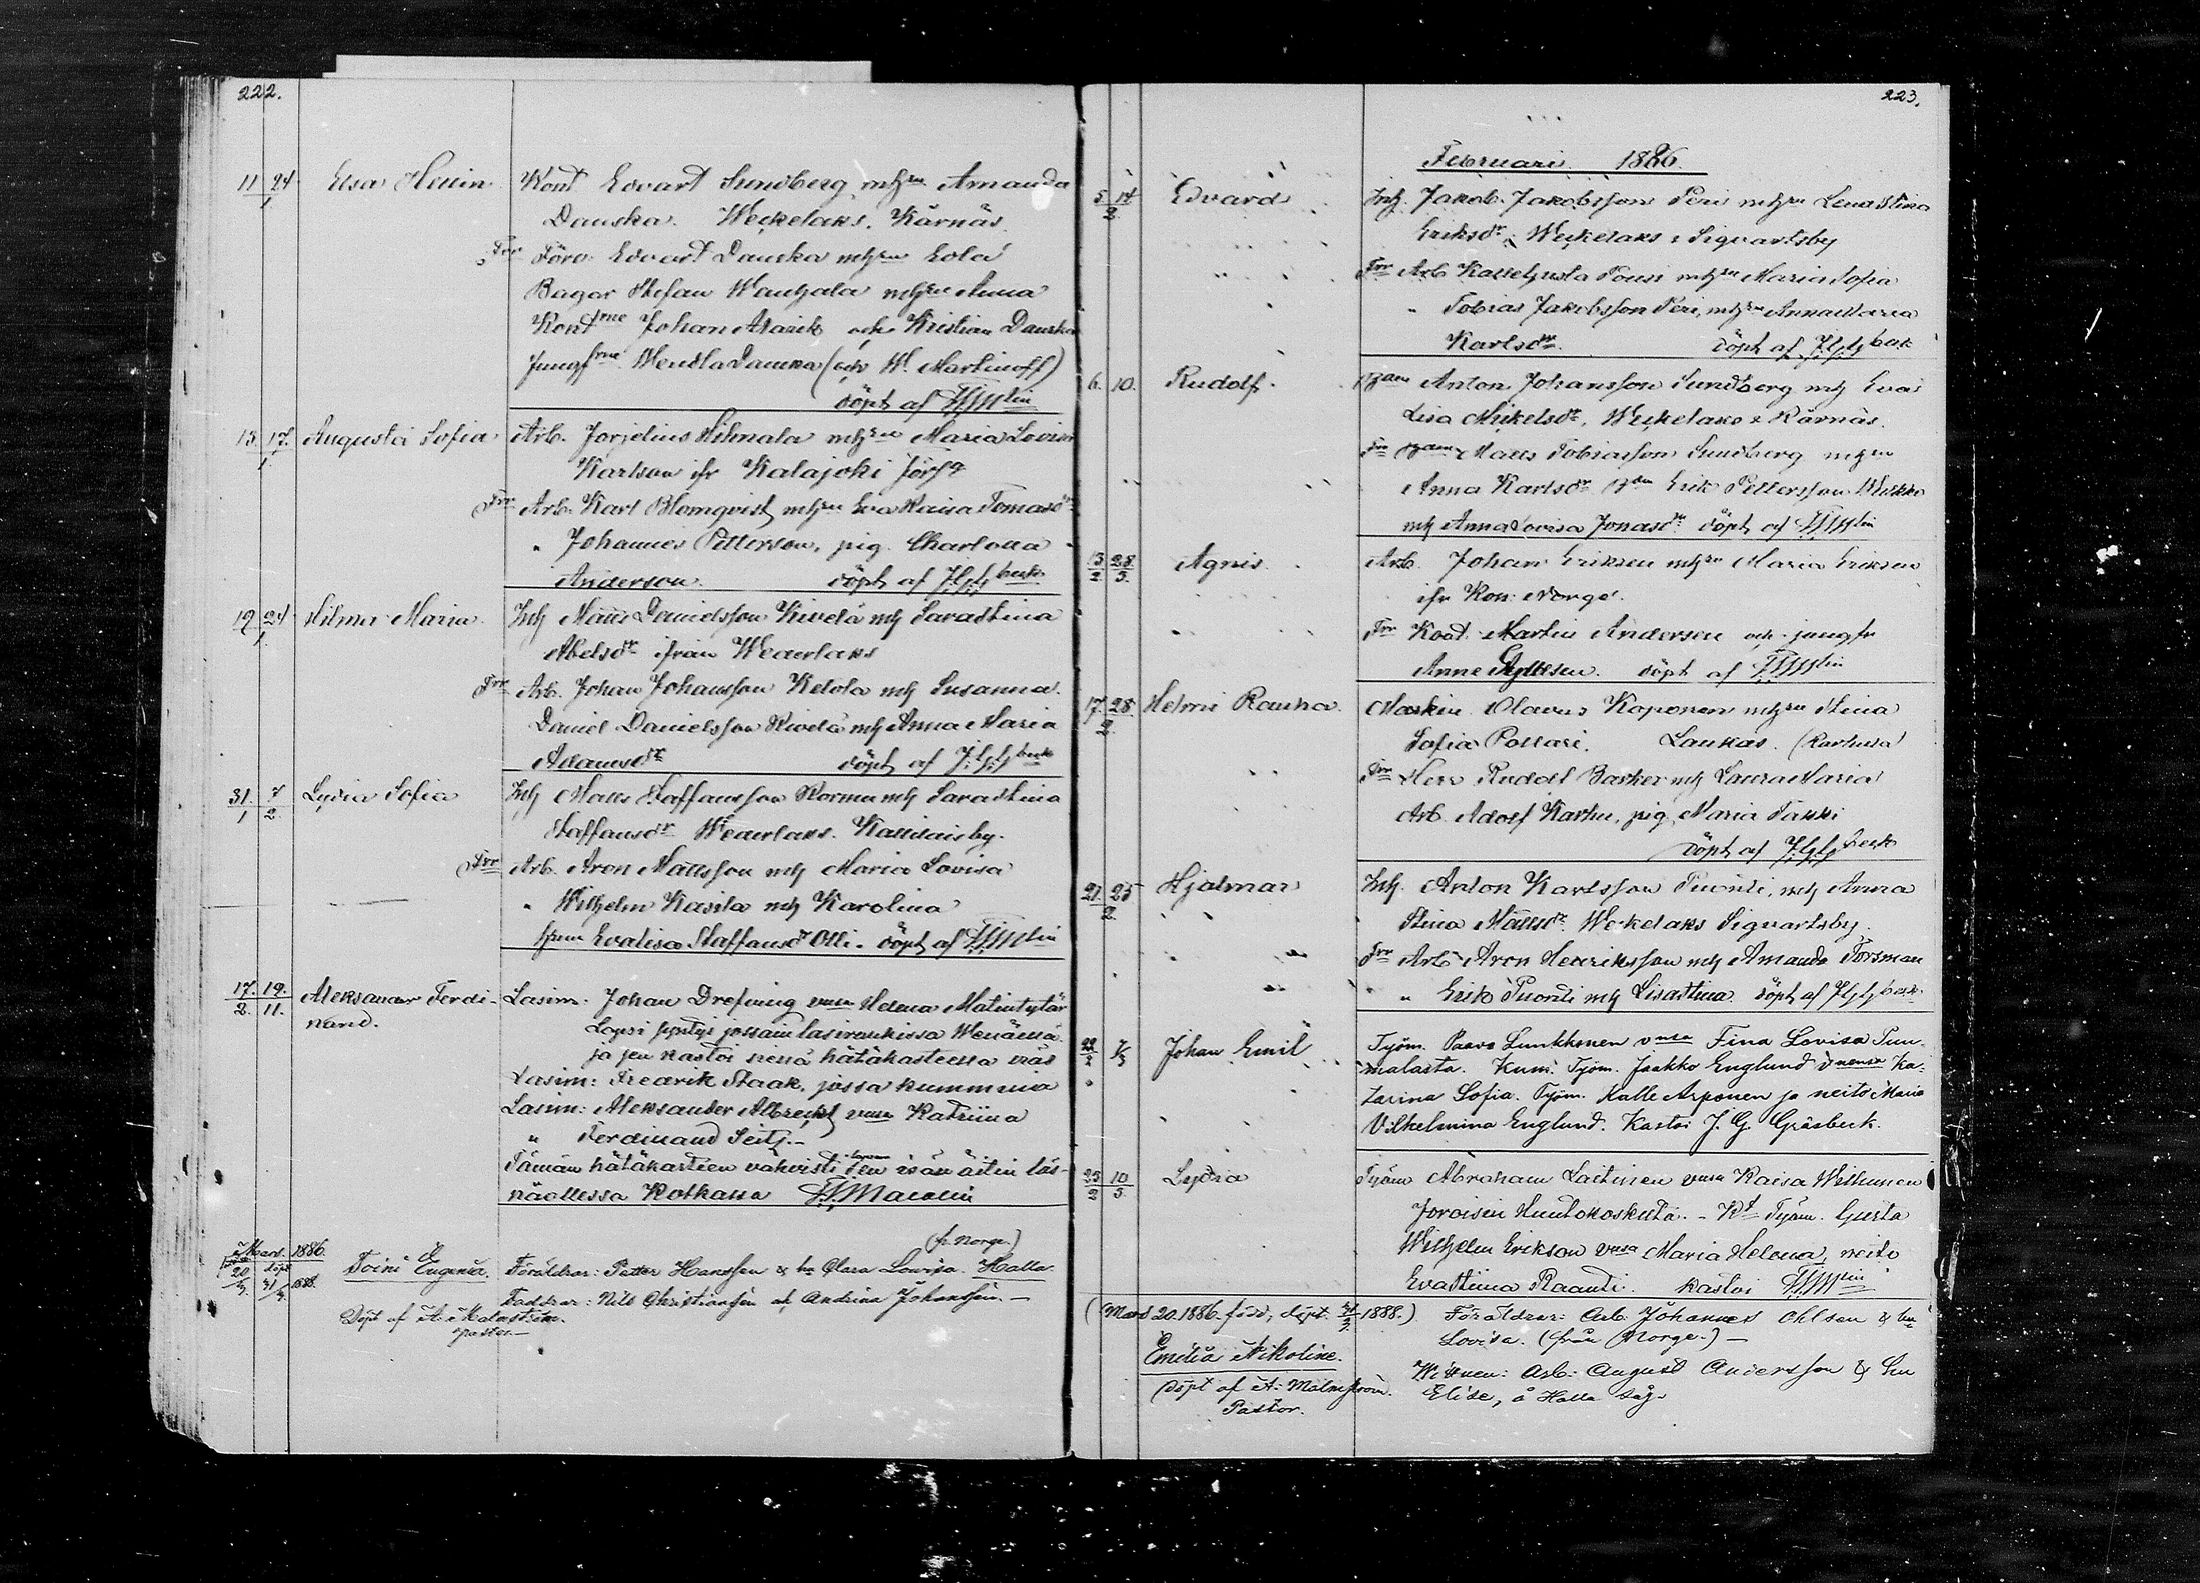 222.
11 24/1 Elsa Helin Kont Edvart Sundberg mhru Amanda
Danska. Weckelaks. Kärnäs.
Frr Förv. Edvart Danska mhru Lola
Bagar Stefan Wanhala mhru Anna
Kontrne Johan och Kristian Danska
Jungfrne Wendla Danska (och W. Martinoff)
döpt af
15. 17./1 Augusta Sofia Arb. Jorjelius Hihnala mhru Maria Lovisa
Karlson ifr Kalajoki
Frr Arb. Karl Blomqvist mhru Eva Kaisa Tomasdr
" Johannes Petterson, pig. Charlotta
Anderson. döpt af J.G.G.beck
19 24/1 Hilma Maria Inh Matts Danielsson Kivelä mh Sarastina
Abelsdr ifrån Wederlaks
Frr Arb. Johan Johansson Ketola mh Susanna.
Daniel Danielsson Kivelä mh Anna Maria
Adamsdr döpt af J.G.G.beck
31/1 7/2 Lydia Sofia Inh Matts Staffansson Kormu mh Sarastina
Staffansdr Wederlaks.
Frr Arb. Aron Mattsson mh Maria Lovisa
" Wilhelm Kasila mh Karolina
Evalisa Staffansdr Olli. döpt af
17./2. 19./11. Aleksander Ferdi- Lasim. Johan Drefning vmsa Helena Matintytär
nand. Lapsi syntyi jossain lasiruukissa Wenäellä
ja sen kastoi siellä hätäkasteessa
Lasim: Fredrik Staak, jossa kummeina
Lasim: Aleksander Albrecht vmsa Katriina
" Ferdinand Seitz.-
Tämän hätäkasteen vahvisti lapsen isän äitin läs-
näollessa Kotkassa Macolin
(fr. Norge.)
Mart. 1886.
född 20/3 döpt 31/3 1888. Toini Eugenia. Föräldrar: Petter Hanssen & hu Clara Lovisa. Halla.
Faddrar: Nils Christiansen & Andrina Johansen.-
Döpt af A. Malmström.
pastor.-
223.
Februari. 1886.
5/2 14 Edvard Inh. Jakob Jakobsson Peri mhru Lena Stina
Eriksdr, Weckelaks & Sigvartsby
Frr Arb Kalle Gusta Pousi mhru Maria Sofia
" Tobias Jakobsson Peri, mhru Anna Maria
Karlsdr. döpt af J.G.G.beck
6. 10. Rudolf. Anton Johansson Sundberg mh Eva
Lisa Mikelsdr, Weckelaks & Kärnäs.
Frr Matts Tobiasson Sundberg mhru
Anna Karlsdr Erik Pettersson
mh Anna Lovisa Jonasdr döpt af
13/2 28/3. Agnis. Arb. Johan Eriksen mhru Maria Eriksen
ifr Kon: Norge.
Frr Koat. Martin Andersen och jungfr
Anne döpt af
17./2 28 Helmi Rauha. Maskin. Olavus Koponen mhru Stina
Sofia Pollari. Laukas. (Karhula)
Frr Herr Rudolf Barker mh Laura Maria
Arb. Adolf Karhu, pig. Maria Takki
döpt af J.G.G.beck
21./2. 25 Hjalmar Inh. Anton Karlsson Puonti, mh Anna
Stina Mattsdr. Weckelaks Sigvartsby.
Frr Arb Aron Henriksson mh Amanda Forsman
" Erik Puonti mh Lisastina. döpt af J.G.G.beck.
22/2 7/3 Johan Emil Työm. Paavo Lunkkonen vmsa Fina Lovisa Puu-
malasta. Kum. Työm. Jaakko Englund vmonsa Ka-
tarina Sofia. Työm. Kalle Arponen ja neito Maria
Vilhelmina Englund. Kastoi J. G. Gräsbeck.
25/2 10/3 Lydia Työm Abraham Laitinen vmsa Kaisa Wilhunen
Joroisin Huutokoskelta. - Kt Työm. Gusta
Wilhelm Erikson vmsa Maria Helena, neito
Evastiina Raanti. kastoi
(Mars 20. 1886. född, döpt. 31/3. 1888.) Föräldrar: Arb. Johannes Ohlsen & hu
Lovisa. (från Norge.)-
Emilia Nikoline.
Wittnen: Arb: August Andersson & hu
Döpt af A. Malmström. Elise, å Halla såg.
Pastor.